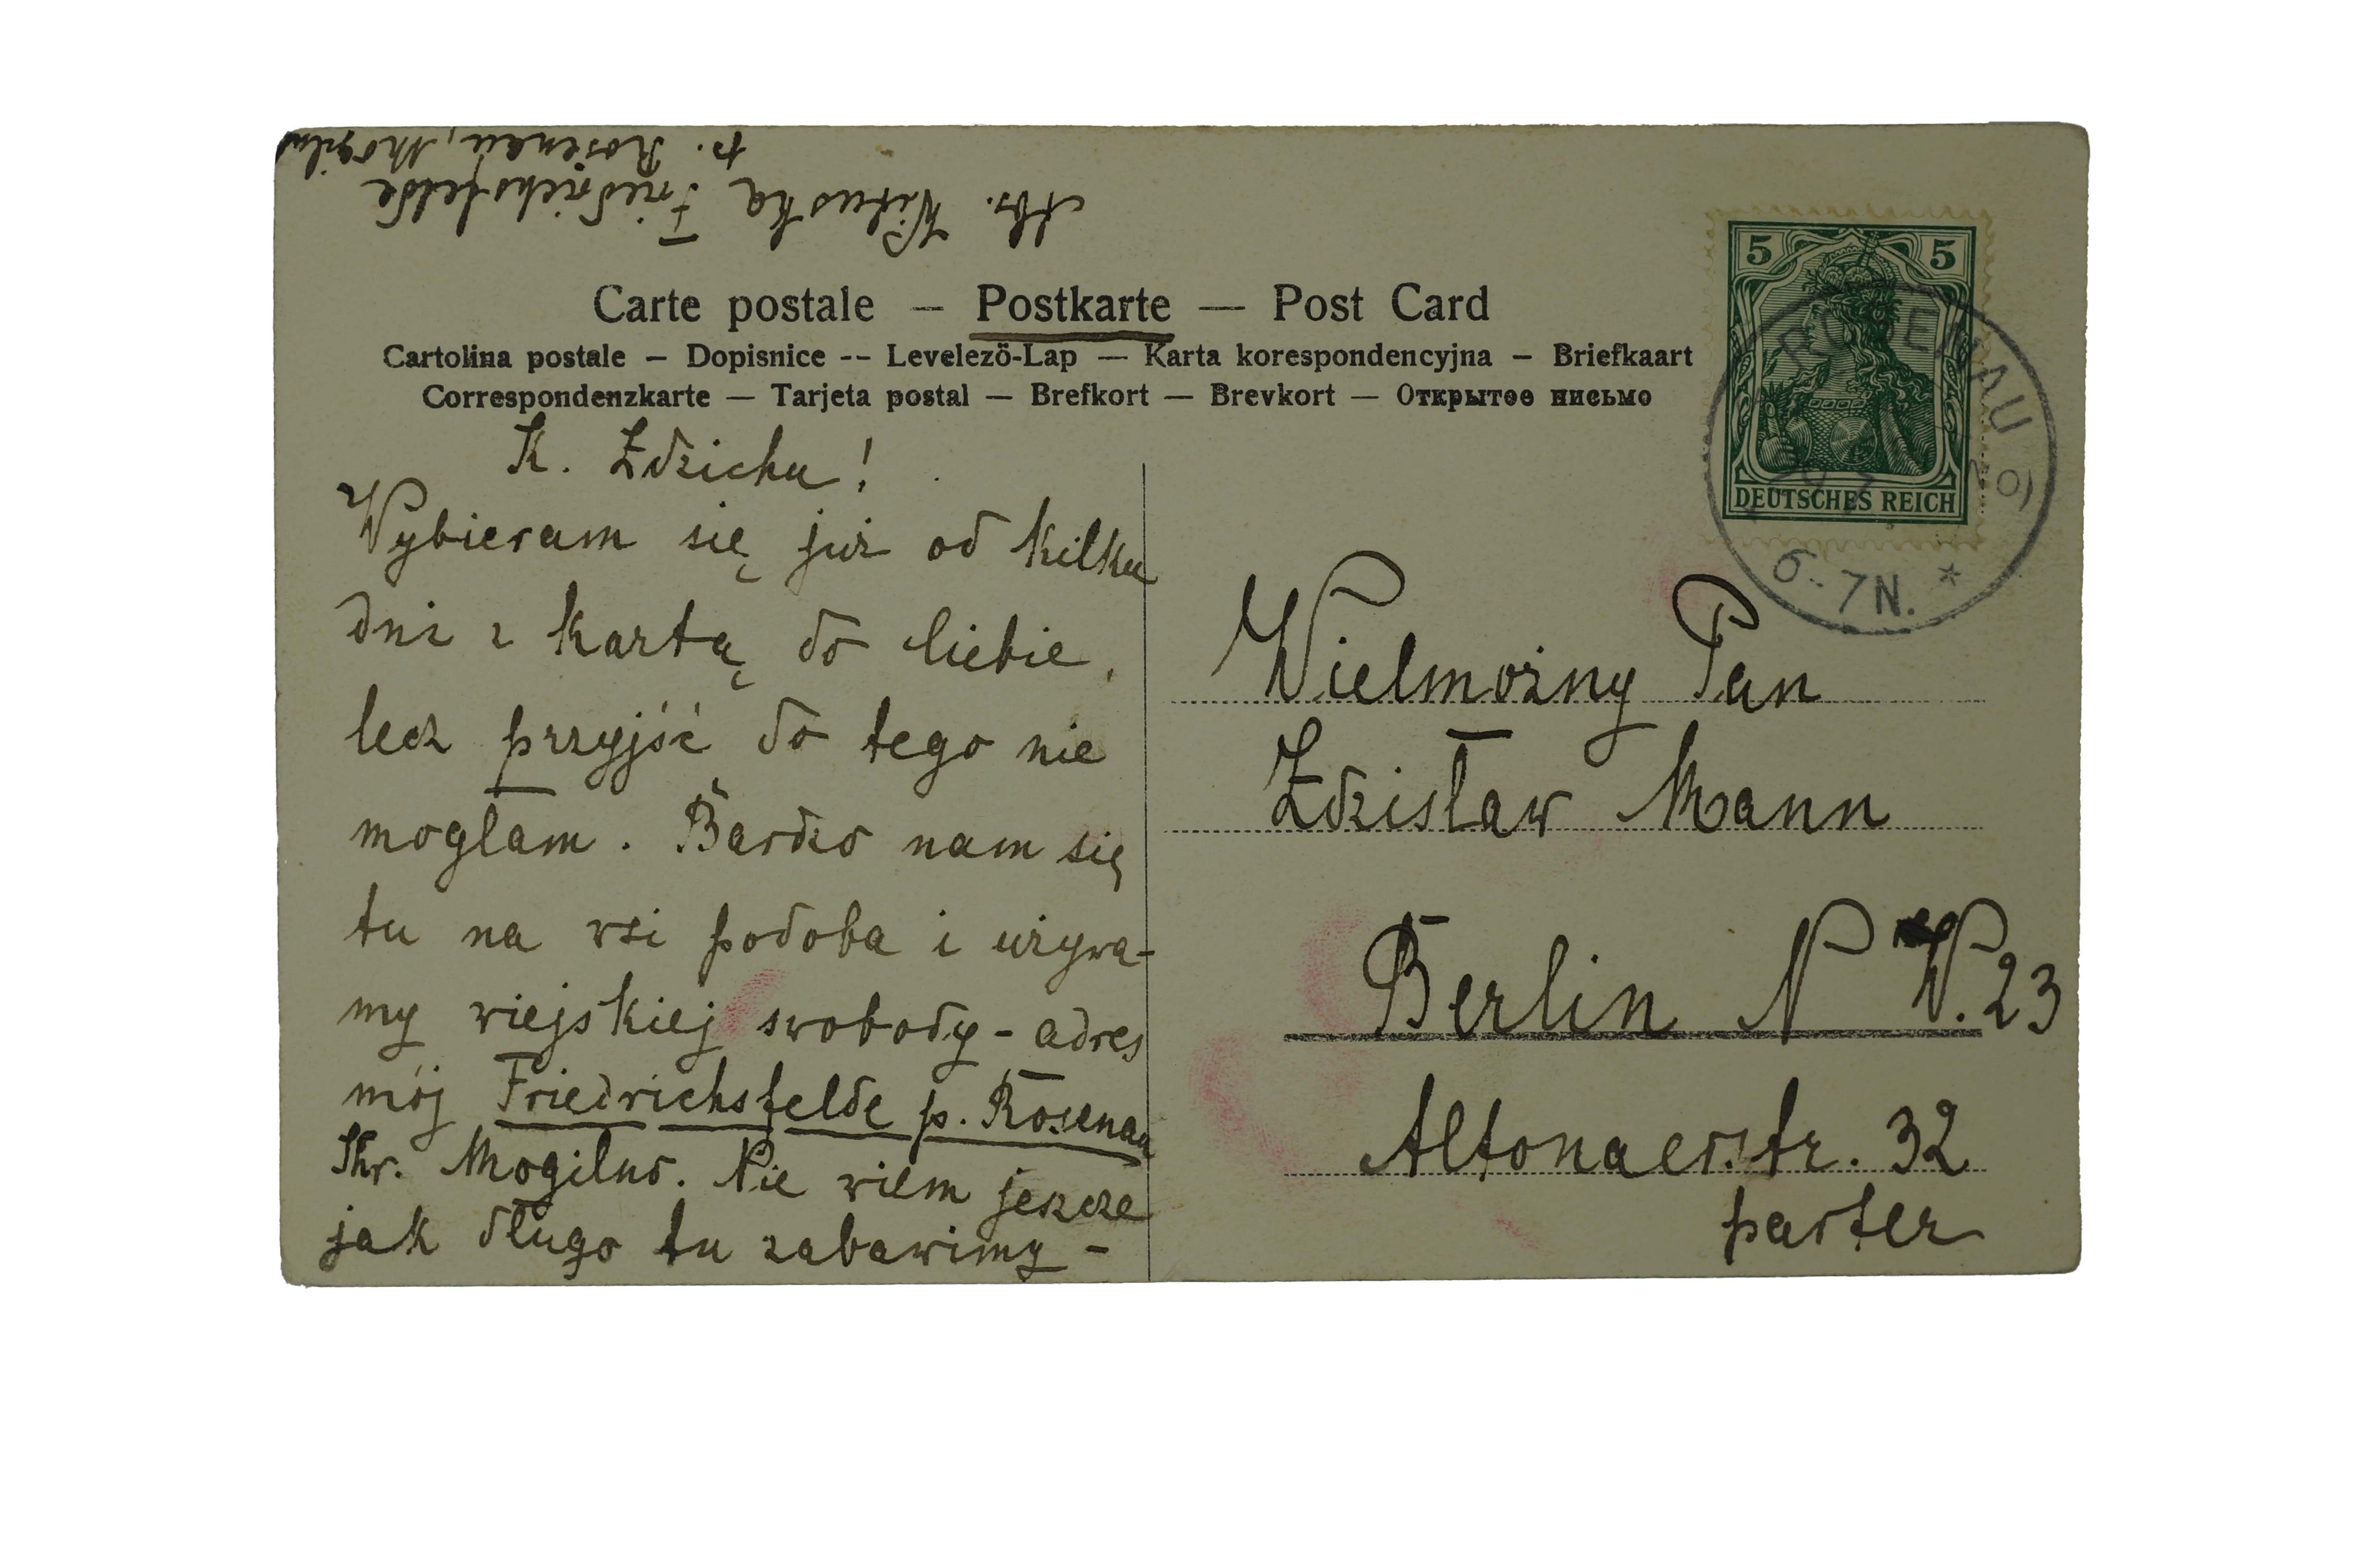 Abs. Wituska Friedrichsfelde
p. Rosenau, Mogilno
Carte postale – Postkarte — Post Card
Cartolina postale – Dopisnice -- Levelezö-Lap — Karta korespondencyjna – Briefkaart
Correspondenzkarte — Tarjeta postal — Brefkort — Brevkort — Открытое письмо
5 5
DEUTSCHES REICH
ROSENAU
6-7N. *
K. Zdzichu!
Wybieram się już od kilku
dni z kartą do Ciebie,
lecz przyjść do tego nie
mogłam. Bardzo nam się
tu na wsi podoba i używa-
my wiejskiej swobody – adres
mój Friedrichsfelde p. Rosenau
Kr. Mogilno. Nie wiem jeszcze
jak długo tu zabawimy –
Wielmożny Pan
Zdzisław Mann
Berlin N W. 23
Altonaerstr. 32
parter